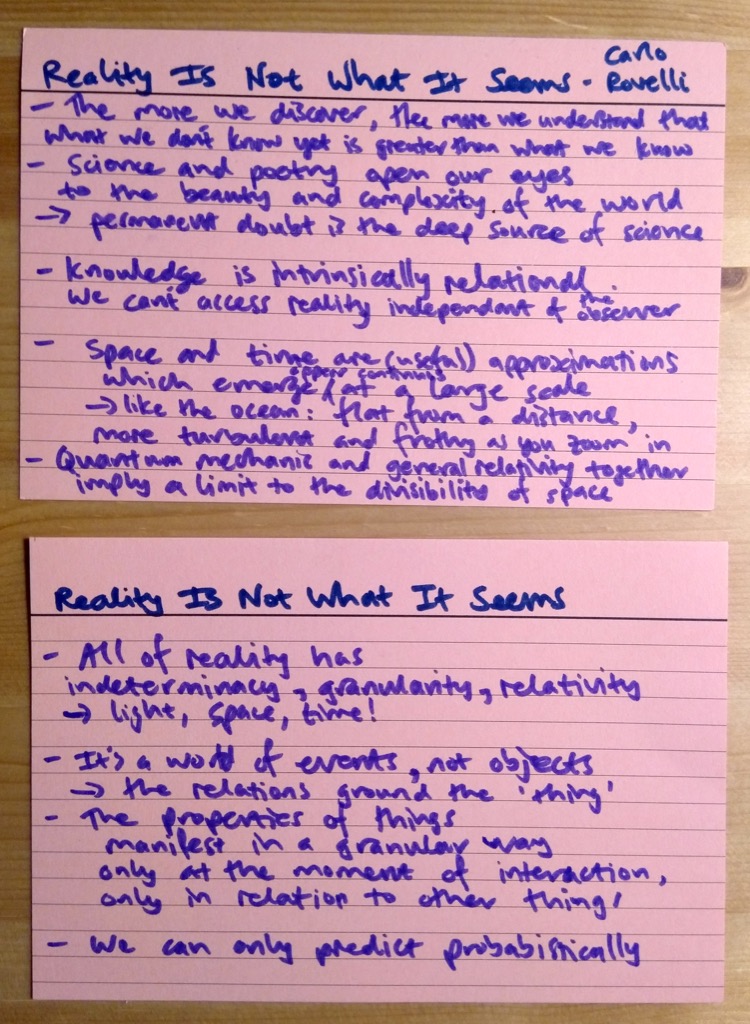 Reality Is Not What It Seems - Carlo Rovelli
- The more we discover, the more we understand that
what we don't know yet is greater than what we know
- Science and poetry open our eyes
to the beauty and complexity of the world
→ permanent doubt is the deep source of science
- Knowledge is intrinsically relational.
We can't access reality independant of the observer
- Space and time are (useful) approximations
which emerge / appear continuous at a large scale
→ like the ocean: flat from a distance,
more turbulent and frothy as you zoom in
- Quantum mechanic and general relativity together
imply a limit to the divisibility of space
Reality Is Not What It Seems
- All of reality has
indeterminacy, granularity, relativity
→ light, space, time!
- It's a world of events, not objects
→ the relations ground the 'thing'
- The properties of things
manifest in a granular way
only at the moment of interaction,
only in relation to other things
- We can only predict probabistically